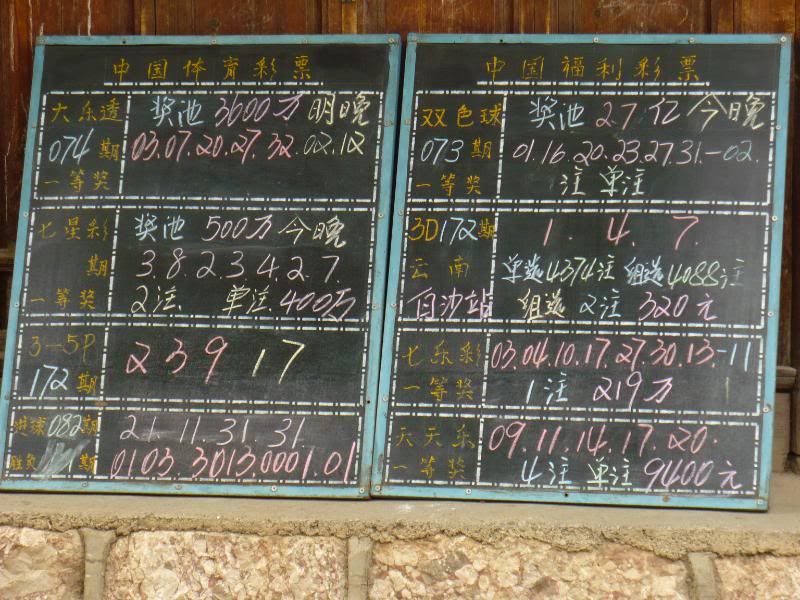 中国体育彩票
大乐透 奖池 3600万 明晚
074期 03.07.20.27.32.02.12
一等奖
七星彩 奖池 500万 今晚
期 3.8.2.3 4.2.7
一等奖 2注 单注 400万
3—5P 2 3 9 1 7
172期
进球082期 21.11.31.31
胜负 期 0103.3013.0001.01
中国福利彩票
双色球 奖池 2.7亿 今晚
073期 01.16.20.23.27.31-02.
一等奖 注 单注
3D172期 1. 4. 7.
云南 单选4374注 组选4088注
白沙站 组选 2注 320元
七乐彩 03.04.10.17.27.30.13-11
一等奖 1注 219万
天天乐 09.11.14.17.20.
一等奖 4注 单注 9400元